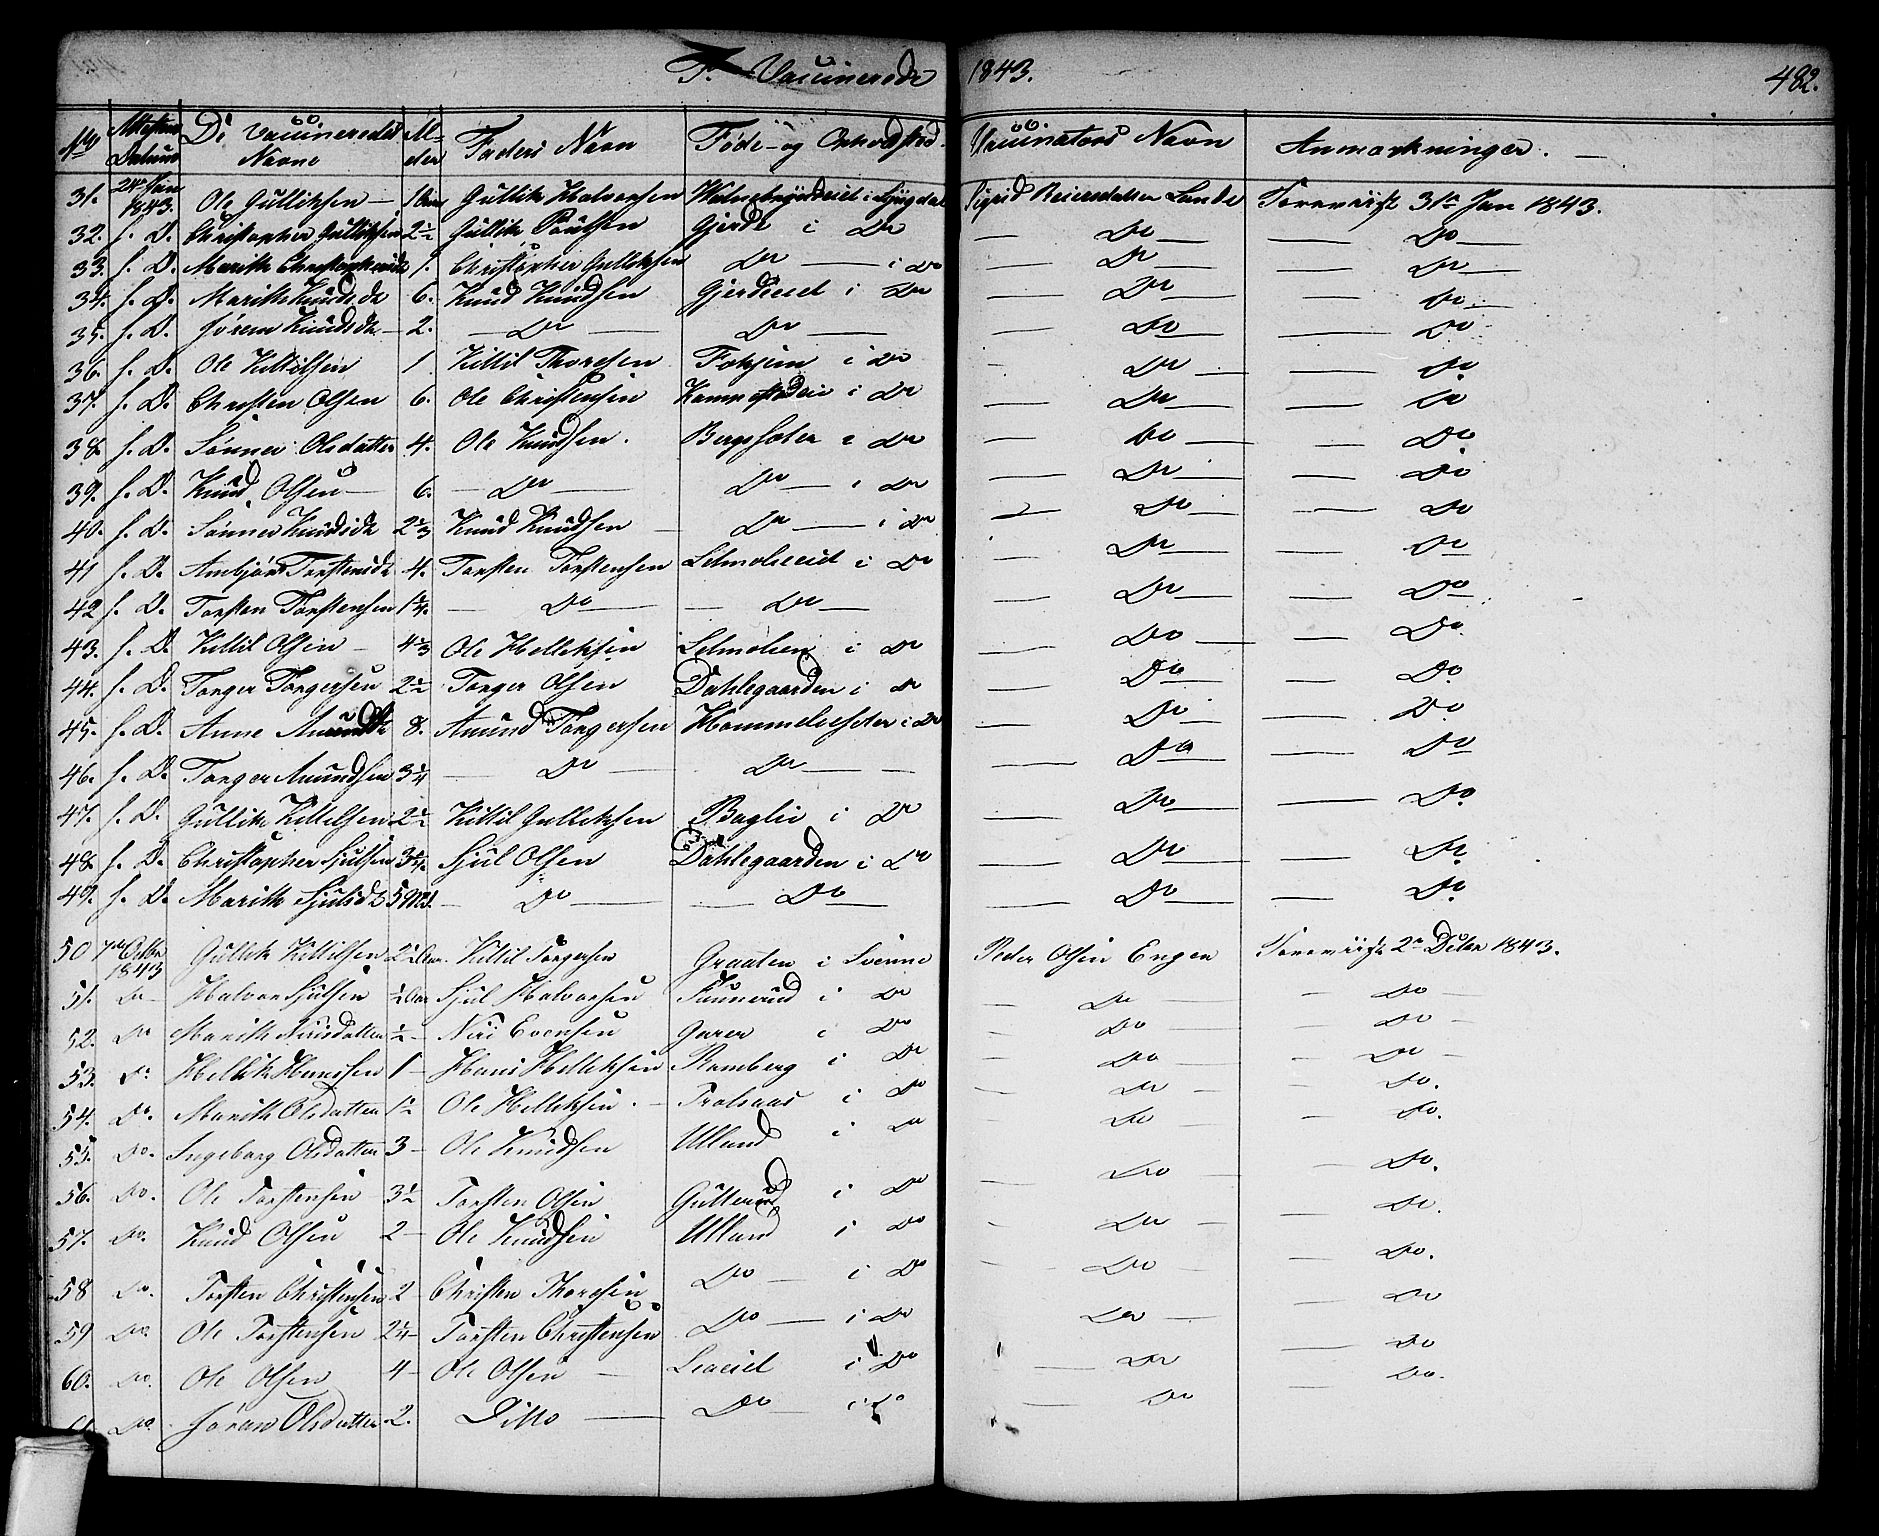 F. Vaccinerede 1843. 482.
No Attestens Datum De Vaccineredes Navne Alder Faders Navn Føde- og Opholdssted. Vaccinators Navn Anmærkninger.
31. 24de Jan 1843. Ole Gulliksen 1 Gullik Halvorsen i Sigdal Sigrid Reiersdatter Lande Foreviist 31te Jan 1843.
32. f. D. Christopher Gulliksen 2½ Gullik Poulsen Gjerde i Do Do Do
33. f. D. Marith Christophersdr 1. Christopher Gulliksen Do i Do Do Do
34. f. D. Marith Knudsdr 6. Knud Knudsen Gjerdeeiet i Do Do Do
35. f. D. Jøren Knudsdr 2. Do Do Do Do
36. f. D. Ole Kittilsen 1. Kittil Thoresen i Do Do Do
37. f. D. Christen Olsen 6. Ole Christensen i Do Do Do
38. f. D. Sønner Olsdatter 4. Ole Knudsen. Bergsæter i Do Do Do
39. f. D. Knud Olsen 6. Do Do i Do Do Do
40. f. D. Sønner Knudsdr 2⅓ Knud Knudsen Do i Do Do Do
41 f. D. Ambjør Torstensdr 4. Torsten Torstensen i Do Do Do
42 f. D. Torsten Torstensen 1¼. Do Do Do Do
43. f. D. Kittil Olsen 4⅓ Ole Helleksen i Do Do Do
44. f. D. Torger Torgersen 2½ Torger Olsen Dahlegaarden i Do Do Do
45. f. D. Anne Amundsdr 8. Amund Torgersen i Do Do Do
46. f. D. Torger Amundsen 3¼ Do Do Do Do
47. f. D. Gullik Kittelsen 2½ Kittil Gulleksen Baglie i Do Do Do
48. f. D. Christopher Sjulsen 3¼. Sjul Olsen Dahlegaarden i Do Do Do
49. f. D. Marith Sjulsdr 5 Md. Do Do Do Do
50 7de Octbr 1843 Gullik Kittilsen 2½ Aar. Kittil Torgersen Graaten i Svenne Peder Olsen Engen Foreviist 2de Decbr 1843.
51. Do Halvor Sjulsen ½ Aar Sjul Halvorsen i Do Do Do
52. Do Marith Nirisdatter ½ Niri Evensen i Do Do Do
53. Do Hellik Hansen 1 Hans Helleksen Ramberg i Do Do Do
54. Do. Marith Olsdatter 1½ Ole Helleksen. i Do Do Do.
55. Do. Ingeborg Olsdatter 3 Ole Knudsen Ulland i Do Do Do.
56. Do. Ole Torstensen 3½ Torsten Olsen Gulterud i Do Do Do.
57. Do. Knud Olsen 2 Ole Knudsen Ulland i Do Do Do.
58 Do. Torsten Christensen 2 Christen Thoresen Do i Do Do Do.
59 Do. Ole Torstensen 2¼ Torsten Christensen Do i Do Do Do
60. Do. Ole Olsen 4 Ole Olsen i Do Do Do
61. Do. Jøran Olsdatter 2. Ditto Do i Do Do Do.